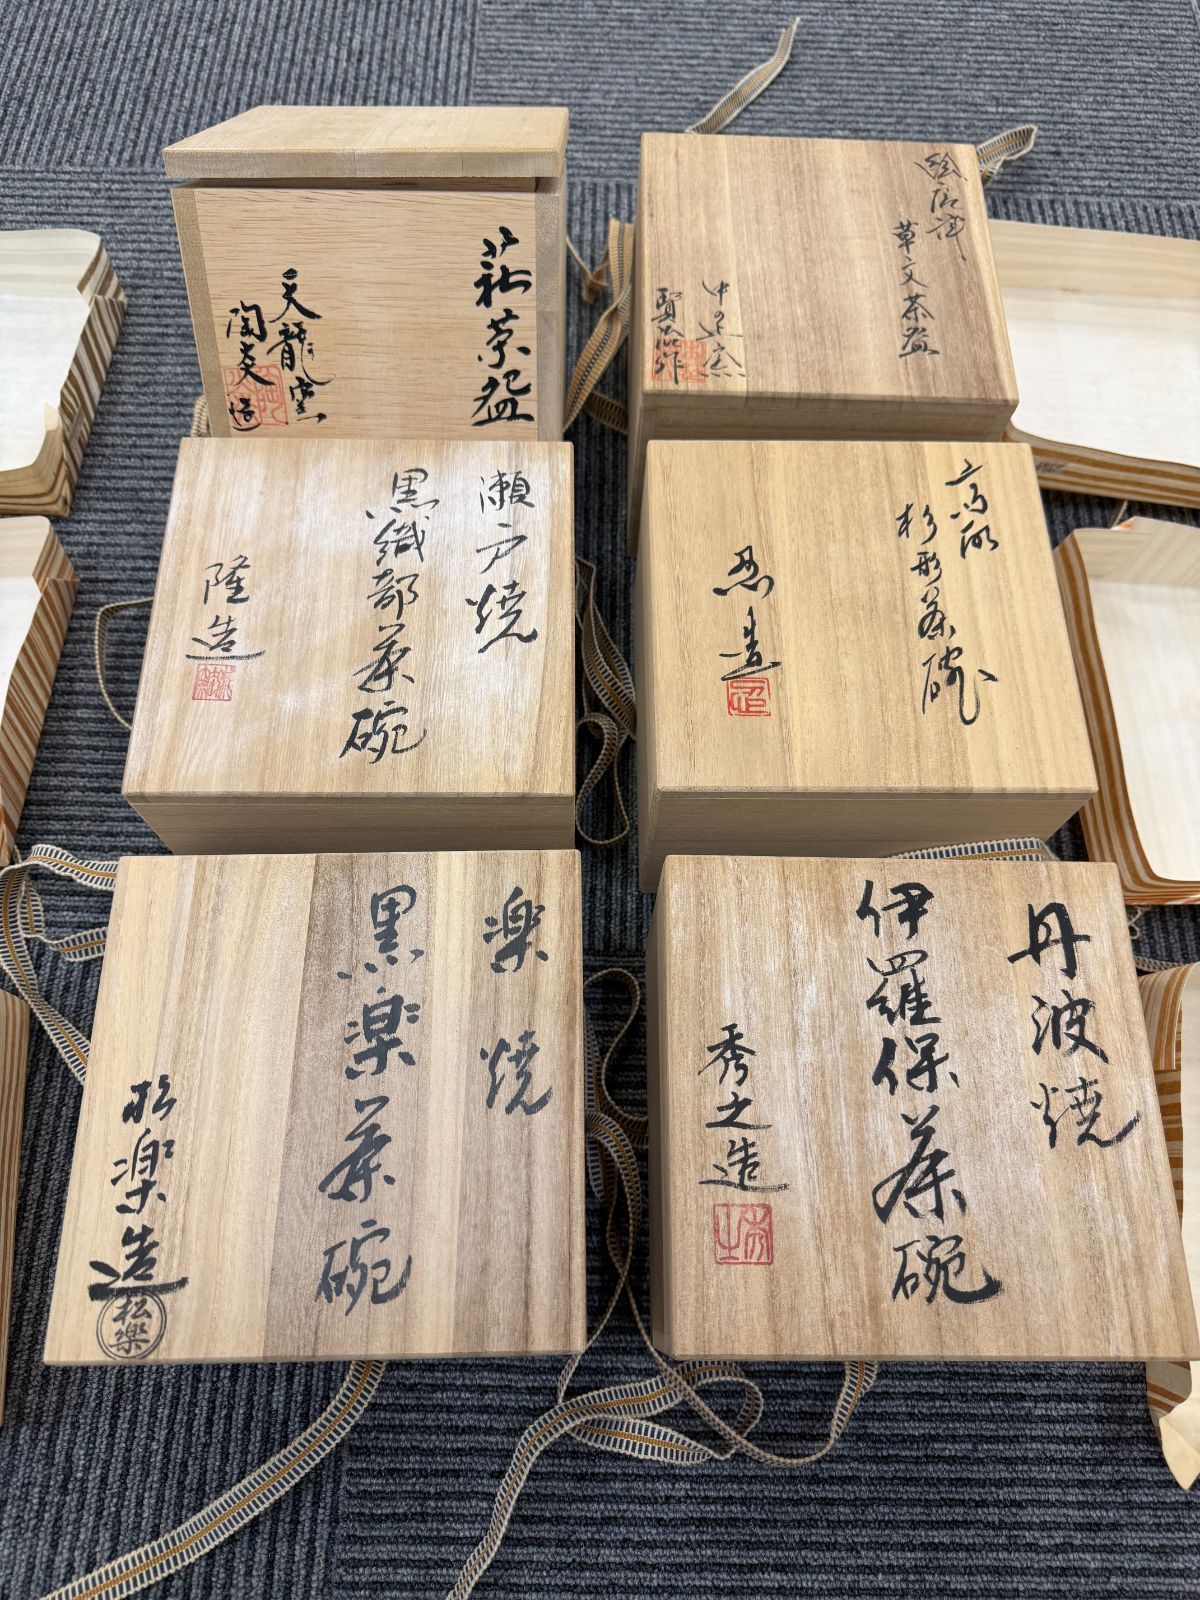 萩茶盌
天龍窯
陶兵造
絵唐津
草文茶盌
中里窯
賢治作
瀬戸焼
黒織部茶碗
隆造
杉形茶碗
忍造
楽焼
黒楽茶碗
松楽造
松楽
丹波焼
伊羅保茶碗
秀之造